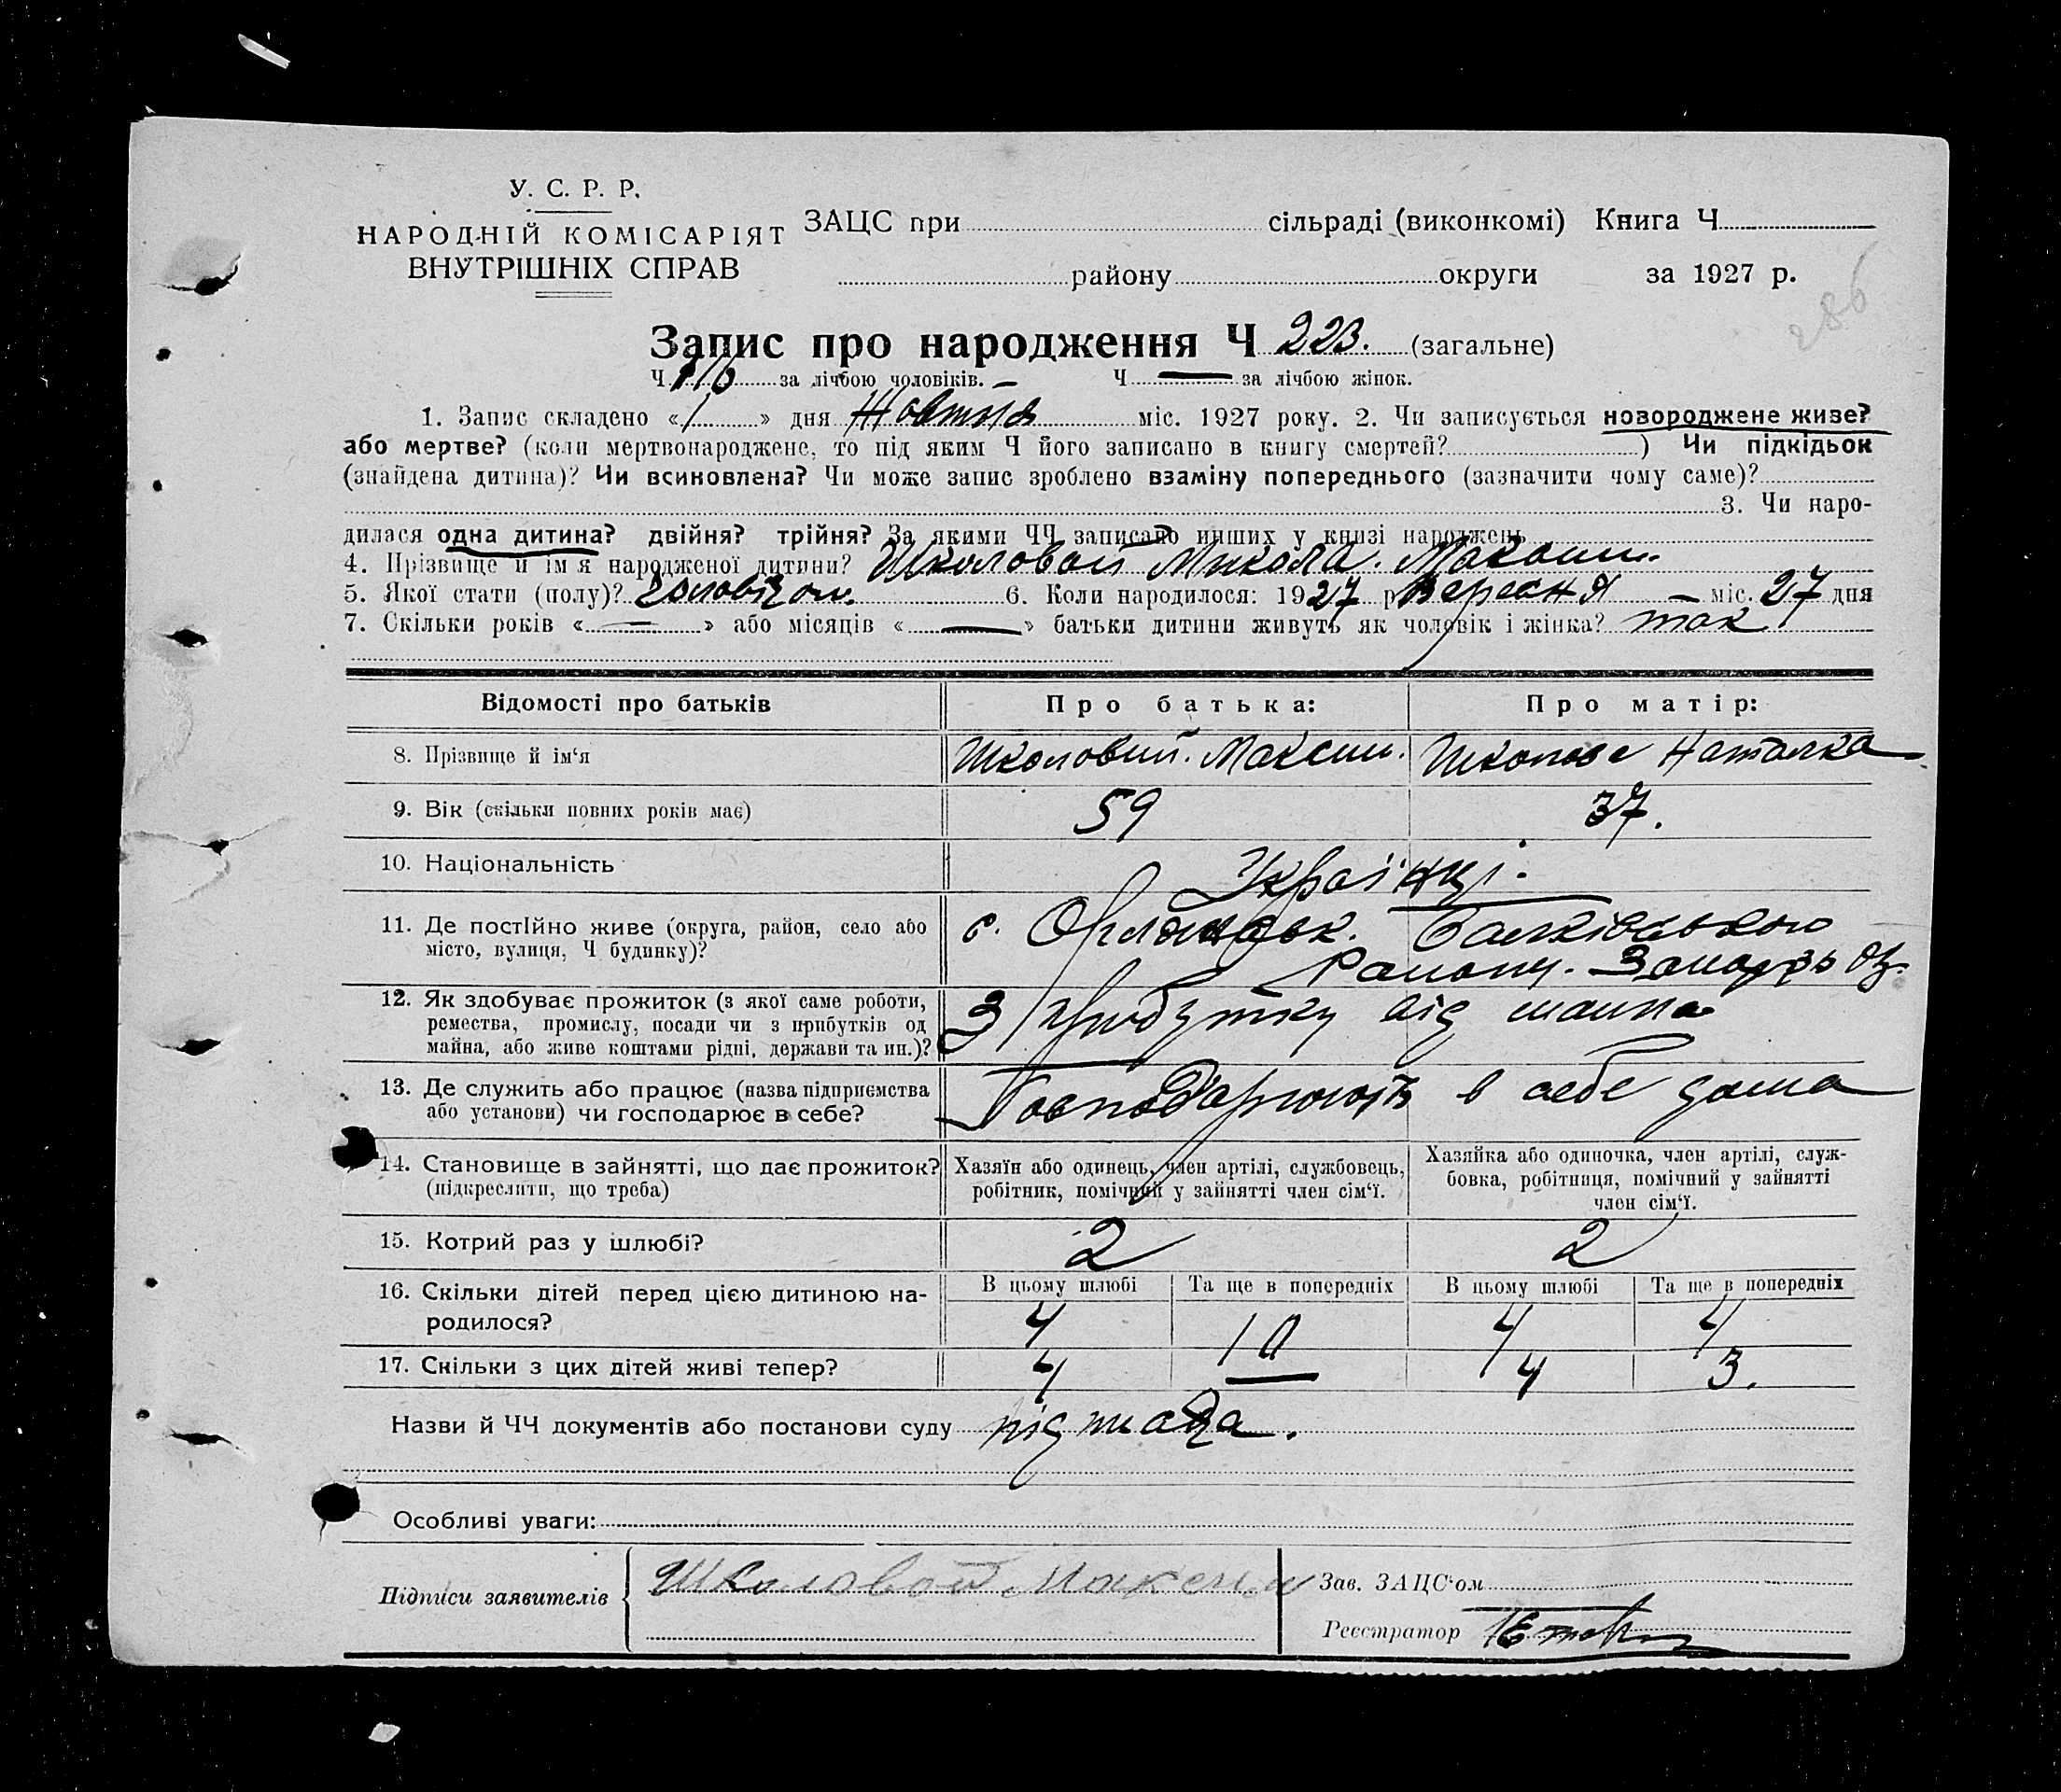 У. С. Р. Р.
НАРОДНІЙ КОМІСАРІЯТ
ВНУТРІШНІХ СПРАВ
ЗАЦС при сільраді (виконкомі) Книга Ч.
району округи за 1927 р.
286
Запис про народження Ч 223. (загальне)
Ч 116 за лічбою чоловіків. — Ч — за лічбою жінок.
1. Запис складено «1» дня Жовтня міс. 1927 року. 2. Чи записується новороджене живе?
або мертве? (коли мертвонароджене, то під яким Ч його записано в книгу смертей? ) Чи підкідьок
(знайдена дитина)? Чи всиновлена? Чи може запис зроблено взаміну попереднього (зазначити чому саме)?
3. Чи наро-
дилася одна дитина? двійня? трійня? За якими ЧЧ записано инших у книзі народжень
4. Прізвище й ім'я народженої дитини? Школовой Микола. Максим.
5. Якої стати (полу)? 6. Коли народилося: 1927 р Вересня — міс. 27 дня
7. Скільки років «—» або місяців «—» батьки дитини живуть як чоловік і жінка? так
Відомості про батьків Про батька: Про матір:
8. Прізвище й ім'я Школовий. Максим. Наталка
9. Вік (скільки повних років має) 59 37.
10. Національність Українці.
11. Де постійно живе (округа, район, село або
місто, вулиця, Ч будинку)? с. Балківського
Району. Запорізь Ок.
12. Як здобуває прожиток (з якої саме роботи,
ремества, промислу, посади чи з прибутків од
майна, або живе коштами рідні, держави та ин.)? З прибутку від майна
13. Де служить або працює (назва підприємства
або установи) чи господарює в себе? в себе дома
14. Становище в зайнятті, що дає прожиток?
(підкреслити, що треба)
Хазяїн або одинець, член артілі, службовець,
робітник, помічний у зайнятті член сім'ї.
Хазяйка або одиночка, член артілі, служ-
бовка, робітниця, помічний у зайнятті
член сім'ї.
15. Котрий раз у шлюбі? 2 2
В цьому шлюбі Та ще в попередніх В цьому шлюбі Та ще в попередніх
16. Скільки дітей перед цією дитиною на-
родилося? 4 10 4 4
17. Скільки з цих дітей живі тепер? 4 — 4 3.
Назви й ЧЧ документів або постанови суду
Особливі уваги:
Підписи заявителів Школовой Максим
Зав. ЗАЦС'ом
Реєстратор